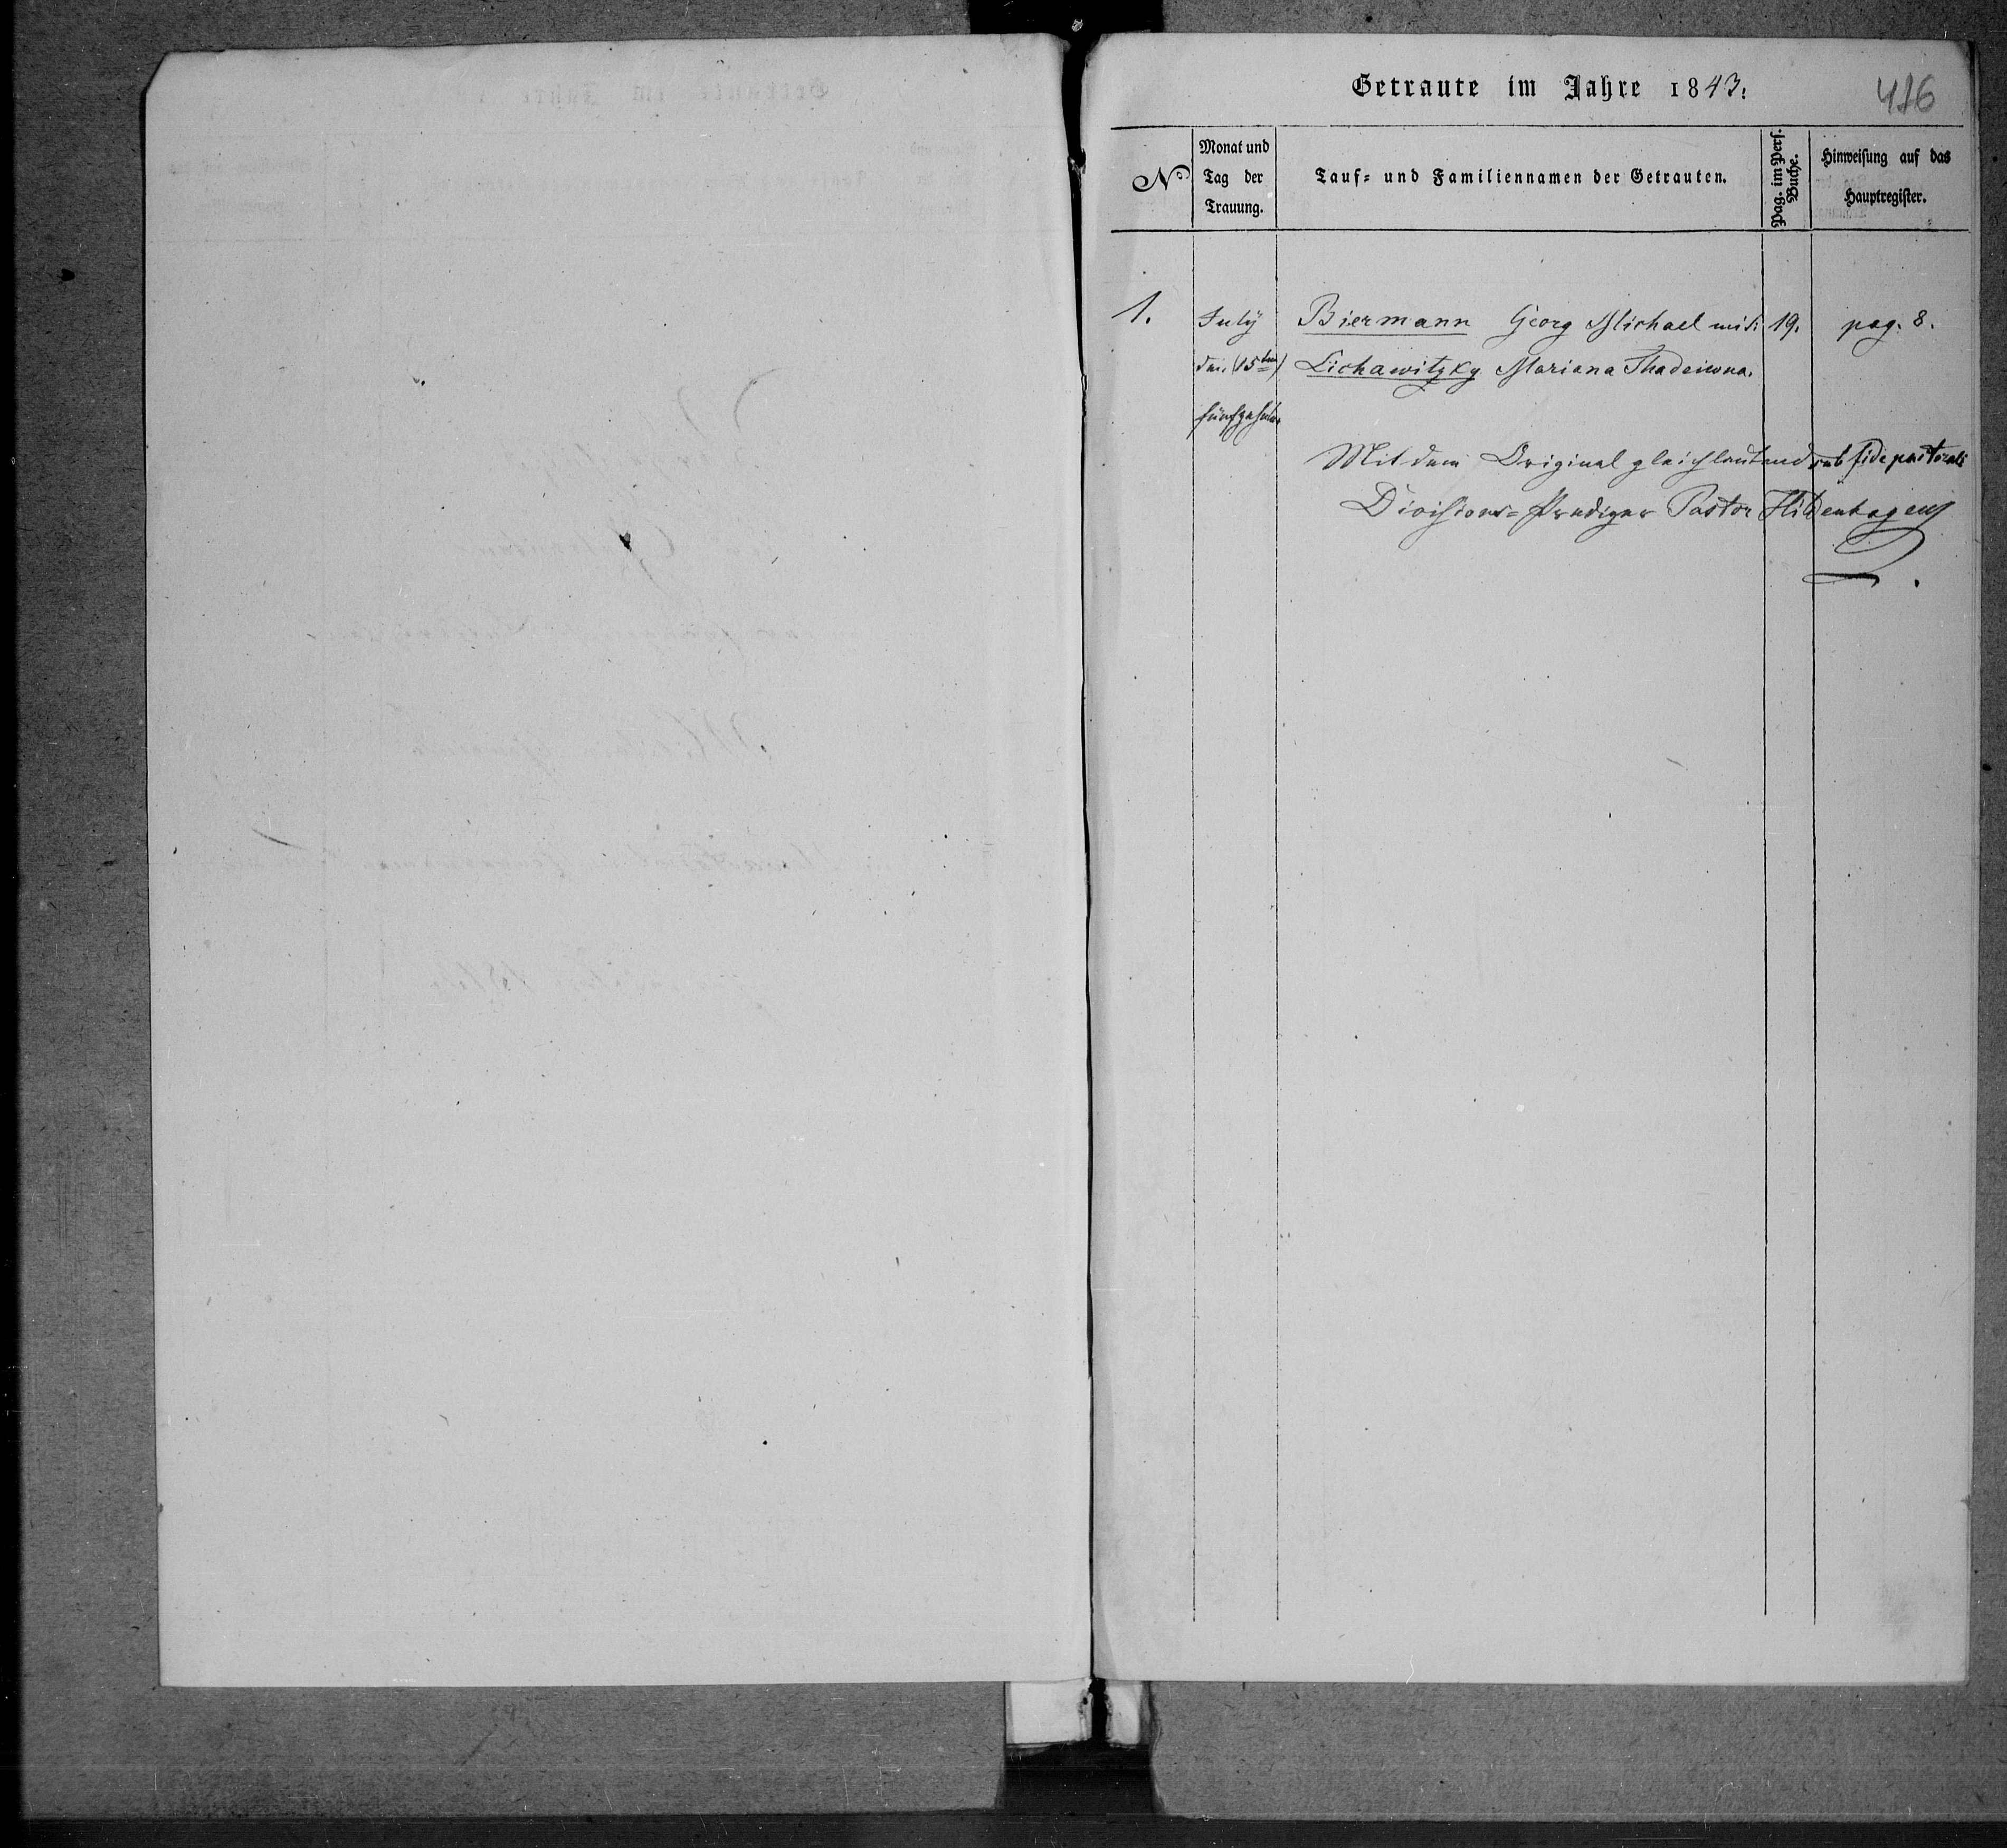 Getraute im Jahre 1843.
416
No
Monat und
Tag der
Trauung.
Tauf- und Familiennamen der Getrauten.
Pag. im Pers.
Buche.
Hinweisung auf das
Hauptregister.
1. July Biermann Georg Michael mit 19. pag. 8.
den (15ten) Lichawitzky Mariana Thadeiewna.
fünfzehnten
Mit dem Original gleichlautend sub fide pastorali
Divisions-Prediger Pastor Hildenhagen